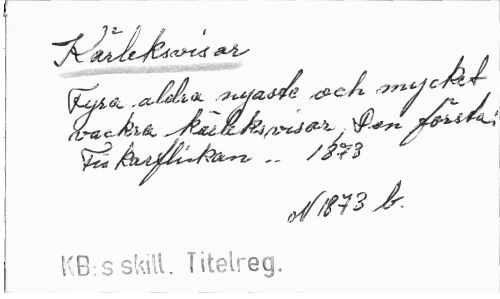 Kärleksvisor
Fyra aldra nyaste och mycket
vackra kärleksvisor, Den första:
Fiskarflickan .. 1873
N 1873 b.
KB:s skill. Titelreg.